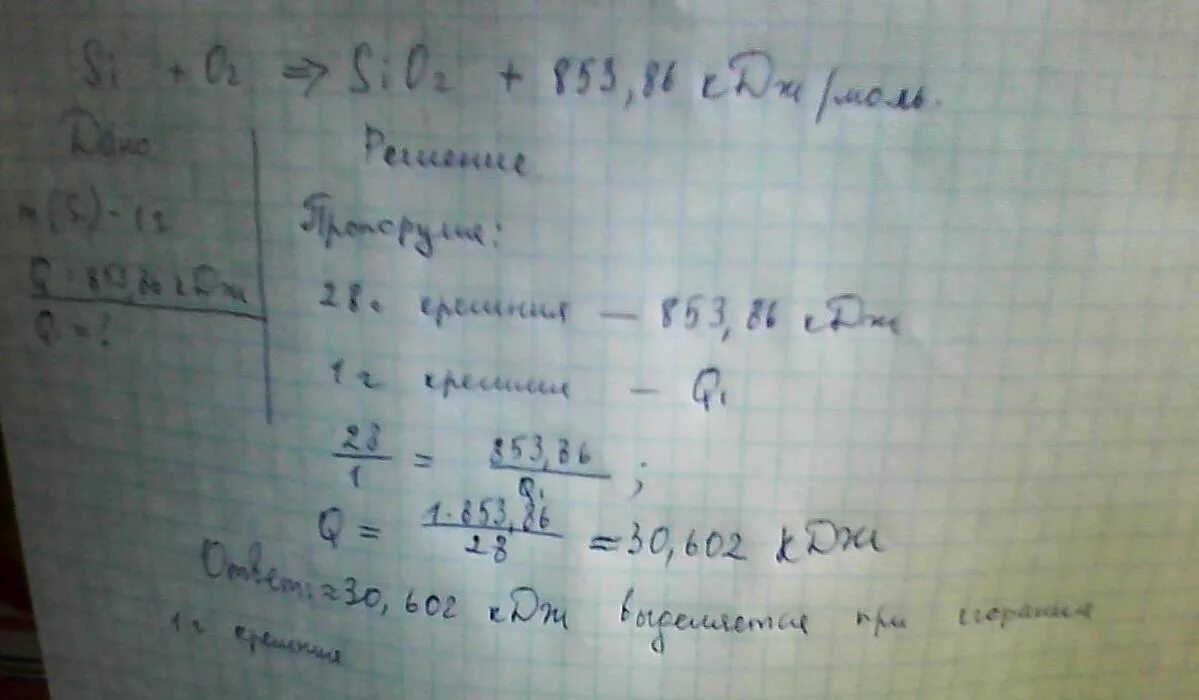 Si + O2 => SiO2 + 853,86 кДж/моль.
Дано
Решение
m(Si) - 1г
Q = 853,86 кДж
Q1 = ?
Пропорция:
28г кремния — 853,86 кДж
1 г кремния — Q1
28/1 = 853,86/Q1 ;
Q = 1·853,86/28 ≈ 30,602 кДж
Ответ: ≈30,602 кДж выделяется при сгорании
1 г кремния